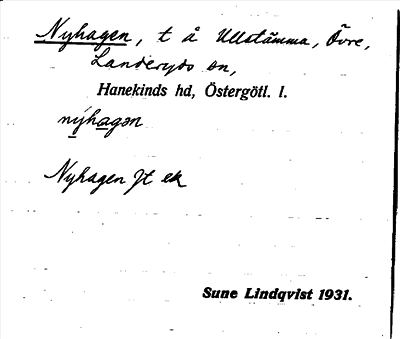 Nyhagen, t å Ullstämma, Övre,
Landeryds sn,
Hanekinds hd, Östergötl. l.
nýhagən
Nyhagen Jt ek
Sune Lindqvist 1931.